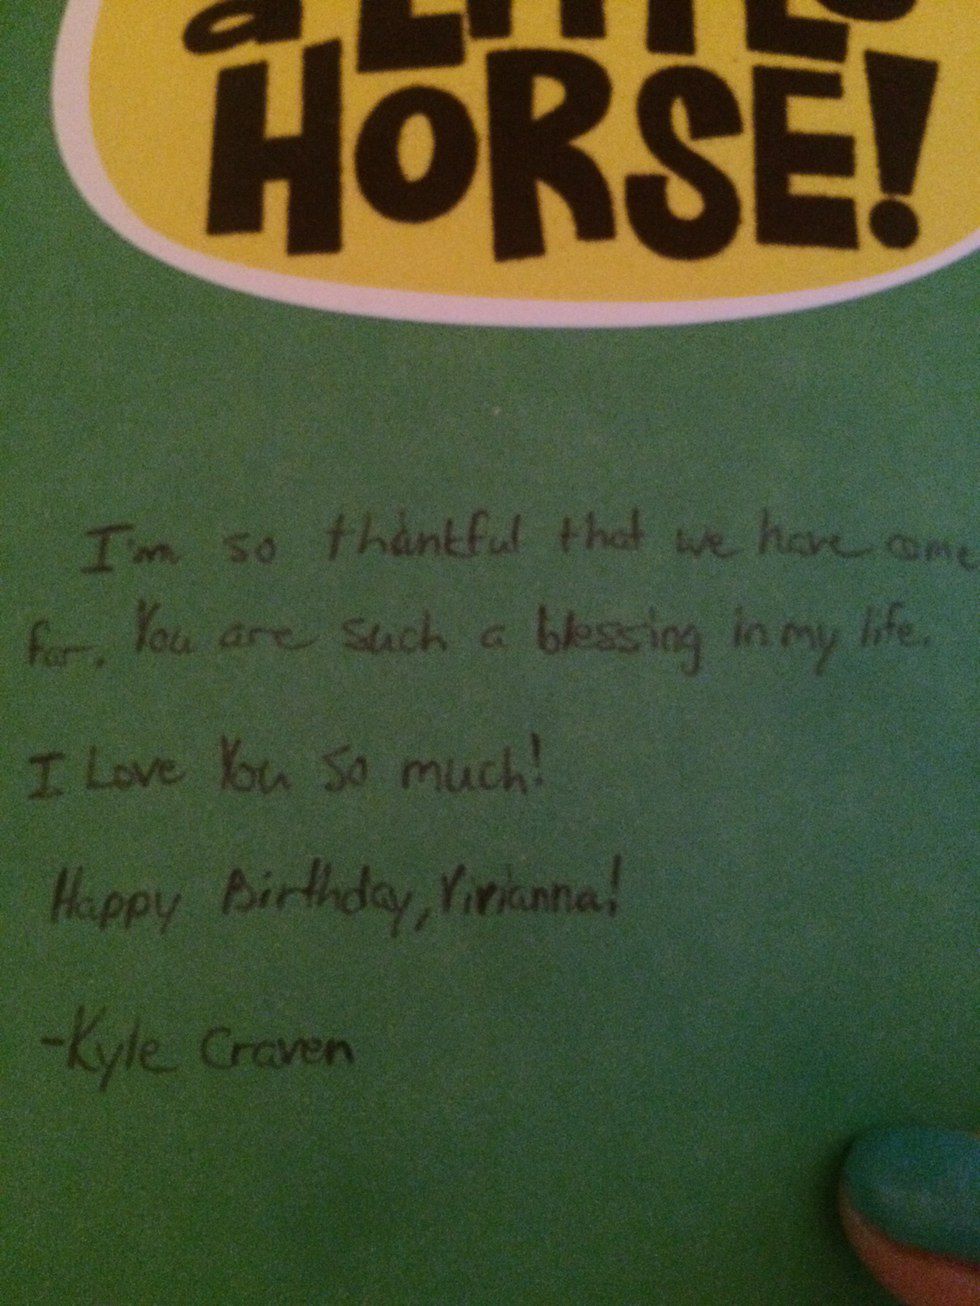 a LITTLE
HORSE!
I'm so thankful that we have come
far. You are such a blessing in my life.
I Love You so much!
Happy Birthday, Virianna!
-Kyle Craven